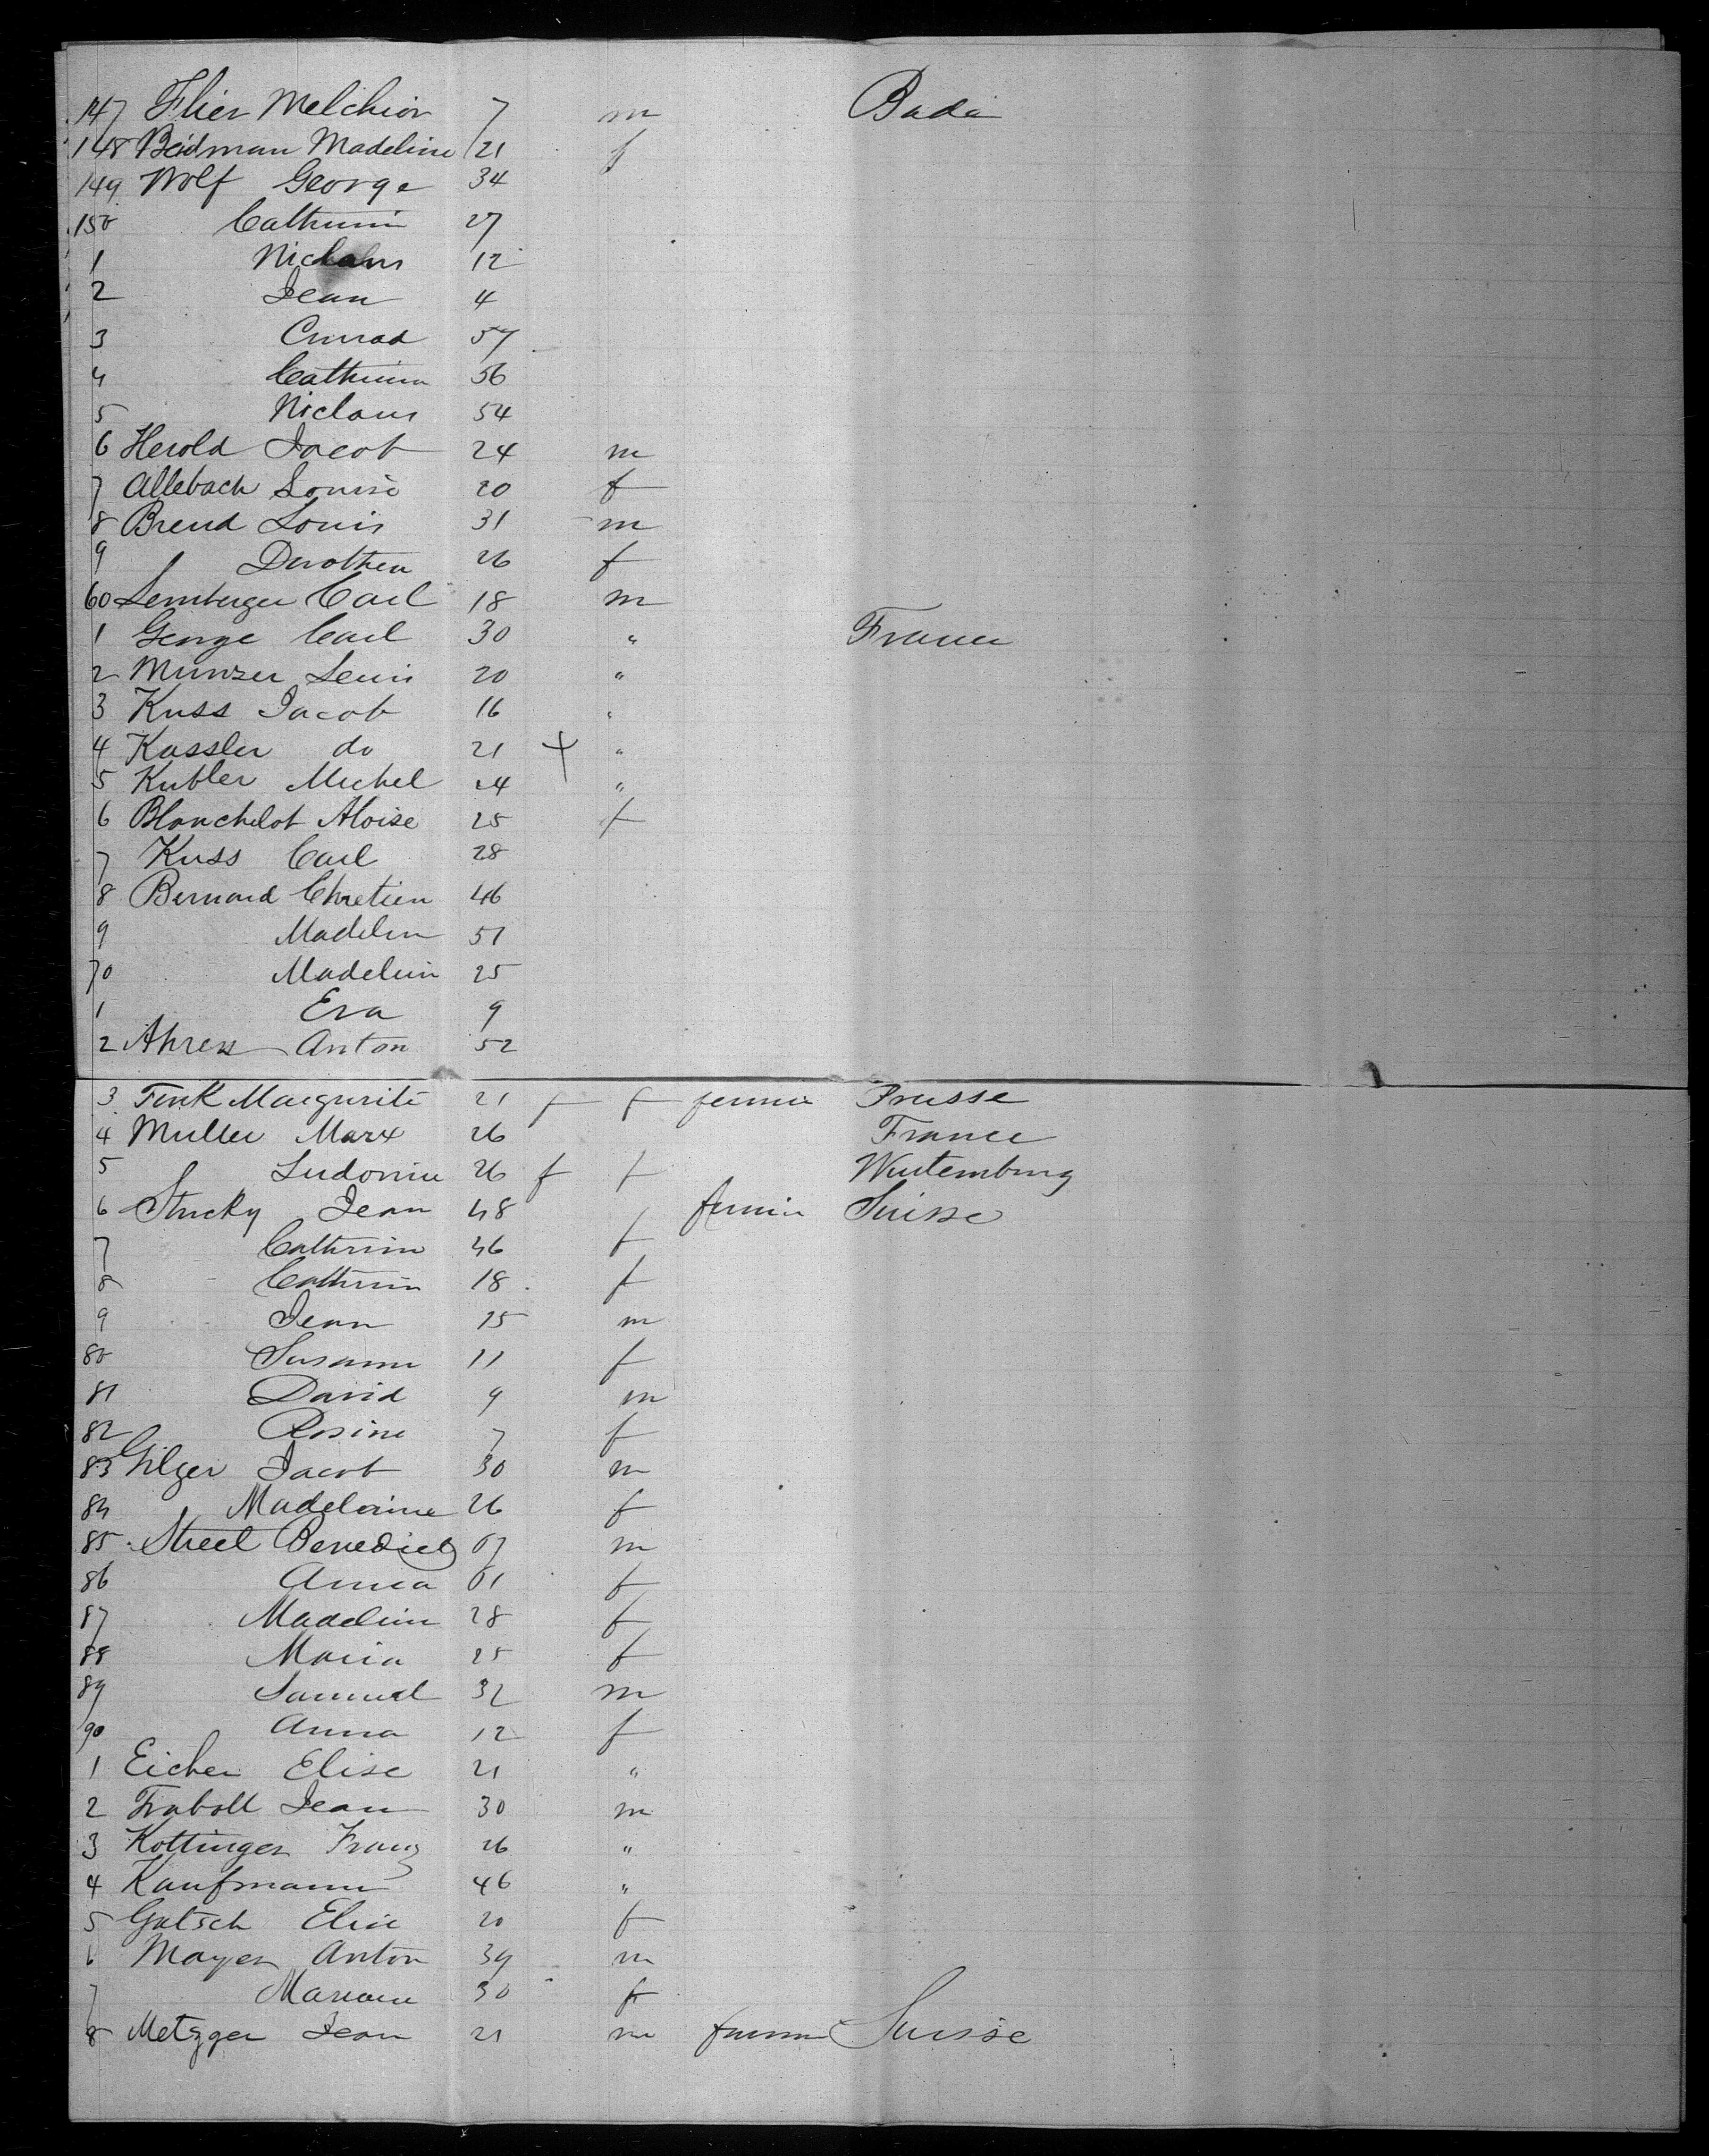 147 Flier Melchior 7 m Bade
148 Beidman Madeline 21 f
149 Wolf George 34
150 Cathrine 27
1 Niclaus 12
2 Jean 4
3 Conrad 57
4 Cathrine 56
5 Niclaus 54
6 Herold Jacob 24 m
7 Allebach Louise 20 f
8 Breud Louis 31 m
9 Dorothea 26 f
60 Lemberger Carl 18 m
1 George Carl 30 " France
2 Munzer Louis 20 "
3 Kuss Jacob 16 "
4 Kassler do 21 "
5 Kubler Michel 24 "
6 Blanchelot Aloise 25 f
7 Kuss Carl 28
8 Bernard Chretien 46
9 Madelin 51
70 Madelein 25
1 Eva 9
2 Ahrens Anton 52
3 Fink Margurite 21 f f Prusse
4 Muller Marx 26 France
5 26 f f Wurtemburg
6 Stucky Jean 48 Suisse
7 Cathrine 46 f
8 Cathrin 18 f
9 Jean 15 m
80 Susanne 11 f
81 David 9 m
82 Rosine 7 f
83 Gilger Jacob 30 m
84 Madeleine 26 f
85 Streel Benedict 67 m
86 Anna 61 f
87 Madeline 28 f
88 Maria 25 f
89 Samuel 32 m
90 Anna 12 f
1 Eicher Elise 21 "
2 Traboll Jean 30 m
3 Kottinger Franz 26 "
4 Kaufmann 46 "
5 Gatsch Elise 20 f
6 Mayer Anton 39 m
7 Mariane 30 f
8 Metzger Jean 21 m Suisse